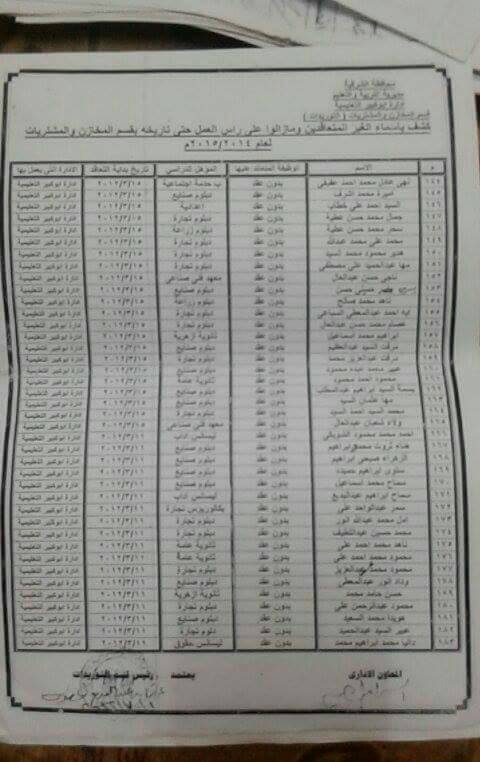 محافظة الشرقية
مديرية التربية والتعليم
ادارة ابوكبير التعليمية
قسم المخازن والمشتريات ( التوريدات )
كشف باسماء الغير المتعاقدين ومازالوا على راس العمل حتى تاريخه بقسم المخازن والمشتريات
لعام ٢٠١٥/٢٠١٤م
م الاسم الوظيفة المتعاقد عليها المؤهل الدراسى تاريخ بداية التعاقد الادارة التى يعمل بها
١٤٤ نهى عادل محمد احمد عفيفى بدون عقد ب خدمة اجتماعية ٢٠١٢/٣/١٥ ادارة ابوكبير التعليمية
١٤٥ اميرة محمد اشرف بدون عقد دبلوم صنايع ٢٠١٢/٣/١٥ ادارة ابوكبير التعليمية
١٤٦ السيد احمد على خطاب بدون عقد اعدادية ٢٠١٢/٣/١٥ ادارة ابوكبير التعليمية
١٤٧ جمال محمد حسن عطية بدون عقد دبلوم تجارة ٢٠١٢/٣/١٥ ادارة ابوكبير التعليمية
١٤٨ سحر محمد حسن عطية بدون عقد دبلوم زراعة ٢٠١٢/٣/١٥ ادارة ابوكبير التعليمية
١٤٩ محمد على محمد عبدالله بدون عقد دبلوم تجارة ٢٠١٢/٣/١٥ ادارة ابوكبير التعليمية
١٥٠ هدير محمود محمد السيد بدون عقد دبلوم تجارة ٢٠١٢/٣/١٥ ادارة ابوكبير التعليمية
١٥١ مها عبدالحميد على مصطفى بدون عقد دبلوم تجارة ٢٠١٢/٣/١٥ ادارة ابوكبير التعليمية
١٥٢ ناجى حسن عبدالعال بدون عقد معهد فنى صناعى ٢٠١٢/٣/١٥ ادارة ابوكبير التعليمية
١٥٣ حسينى حسن بدون عقد دبلوم صنايع ٢٠١٢/٣/١٥ ادارة ابوكبير التعليمية
١٥٤ ناهد محمد صالح بدون عقد دبلوم زراعة ٢٠١٢/٣/١٥ ادارة ابوكبير التعليمية
١٥٥ ايه احمد عبدالمعطى السباعى بدون عقد دبلوم تجارة ٢٠١٢/٣/١٥ ادارة ابوكبير التعليمية
١٥٦ عصام محمد حسن عبدالعال بدون عقد دبلوم تجارة ٢٠١٢/٣/١٥ ادارة ابوكبير التعليمية
ابراهيم محمد اسماعيل بدون عقد ثانوية ازهرية ٢٠١٢/٣/١٥ ادارة ابوكبير التعليمية
مرفت السيد عبدالعظيم بدون عقد دبلوم صنايع ٢٠١٢/٣/١٥ ادارة ابوكبير التعليمية
مرفت عبدالعزيز محمد بدون عقد دبلوم تجارة ادارة ابوكبير التعليمية
عبير محمد عبده محمود بدون عقد دبلوم صنايع ادارة ابوكبير التعليمية
محمود احمد محمود بدون عقد ثانوية عامة ادارة ابوكبير التعليمية
بسمة السيد ابراهيم عبدالمطلب بدون عقد دبلوم صنايع ادارة ابوكبير التعليمية
مها عثمان السيد بدون عقد دبلوم صنايع ادارة ابوكبير التعليمية
محمد السيد احمد السيد بدون عقد دبلوم تجارة ادارة ابوكبير التعليمية
ولاء شعبان عبدالعال بدون عقد معهد فنى صناعى ادارة ابوكبير التعليمية
احمد محمد محمود الشوبكى بدون عقد ليسانس اداب ٢٠١٢/٣/١١ ادارة ابوكبير التعليمية
هناء ثروت محمد ابراهيم بدون عقد دبلوم صنايع ٢٠١٢/٣/١١ ادارة ابوكبير التعليمية
الزهراء صبحى ابراهيم بدون عقد دبلوم تجارة ٢٠١٢/٣/١١ ادارة ابوكبير التعليمية
سلوى ابراهيم حميده بدون عقد دبلوم صنايع ٢٠١٢/٣/١١ ادارة ابوكبير التعليمية
سماح محمد اسماعيل بدون عقد دبلوم تجارة ٢٠١٢/٣/١١ ادارة ابوكبير التعليمية
سماح ابراهيم عبدالبديع بدون عقد ليسانس اداب ٢٠١٢/٣/١١ ادارة ابوكبير التعليمية
سمر عبدالواحد على بدون عقد بكالوريوس تجارة ٢٠١٢/٣/١١ ادارة ابوكبير التعليمية
امل محمد عبدالله النور بدون عقد دبلوم تجارة ٢٠١٢/٣/١١ ادارة ابوكبير التعليمية
محمد حسين عبداللطيف بدون عقد دبلوم صنايع ٢٠١٢/٣/١١ ادارة ابوكبير التعليمية
١٧٥ ناهد محمد احمد على بدون عقد ثانوية عامة ٢٠١٢/٣/١١ ادارة ابوكبير التعليمية
١٧٦ محمود محمد احمد على بدون عقد دبلوم تجارة ٢٠١٢/٣/١١ ادارة ابوكبير التعليمية
١٧٧ محمود محمد عبدالعزيز بدون عقد دبلوم تجارة ٢٠١٢/٣/١١ ادارة ابوكبير التعليمية
١٧٨ وداد النور عبدالمعطى بدون عقد دبلوم صنايع ٢٠١٢/٣/١١ ادارة ابوكبير التعليمية
١٧٩ حسن حامد محمد بدون عقد ثانوية ازهرية ٢٠١٢/٣/١١ ادارة ابوكبير التعليمية
١٨٠ محمود عبدالرحمن على بدون عقد دبلوم تجارة ٢٠١٢/٣/١١ ادارة ابوكبير التعليمية
١٨١ هويدا محمد السعيد بدون عقد دبلوم صنايع ٢٠١٢/٣/١١ ادارة ابوكبير التعليمية
١٨٢ عبير السيد عبدالحميد بدون عقد دبلوم تجارة ٢٠١٢/٣/١١ ادارة ابوكبير التعليمية
١٨٣ داليا محمد ابراهيم محمد بدون عقد ليسانس حقوق ٢٠١٢/٣/١١ ادارة ابوكبير التعليمية
المعاون الادارى يعتمد رئيس قسم التوريدات